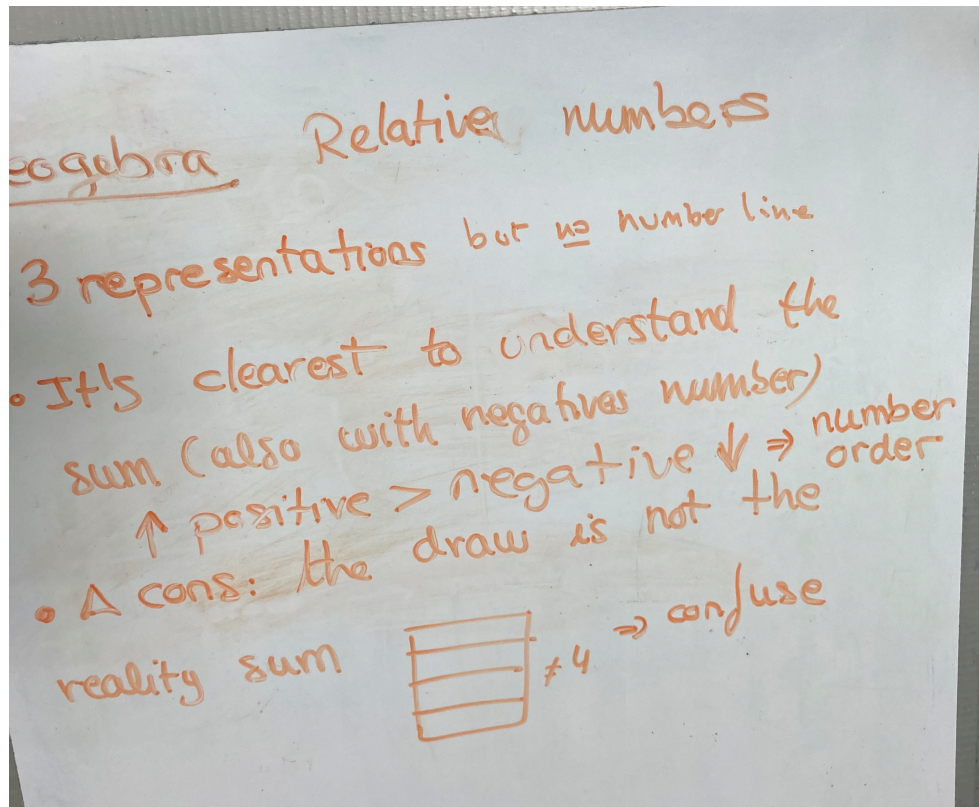 eogebra Relative numbers
3 representations but no number line
• It's clearest to understand the
sum (also with negatives number)
↑ positive > negative ↓ ⇒ number order
• Δ cons: the draw is not the
reality sum ≠ 4 ⇒ confuse